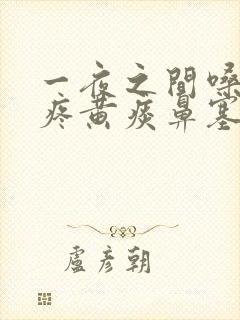 一夜之間嗓
疼黃痰鼻塞
盧彥朝